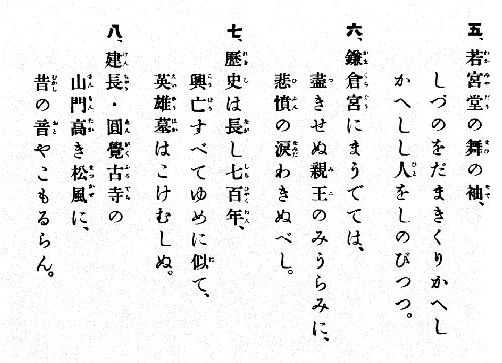 五、若宮堂の舞の袖、
しづのをだまきくりかへし
かへしし人をしのびつつ。
六、鎌倉宮にまうでては、
盡きせぬ親王のみうらみに、
悲憤の涙わきぬべし。
七、歷史は長し七百年、
興亡すべてゆめに似て、
英雄墓はこけむしぬ。
八、建長・圓覺古寺の
山門高き松風に、
昔の音やこもるらん。